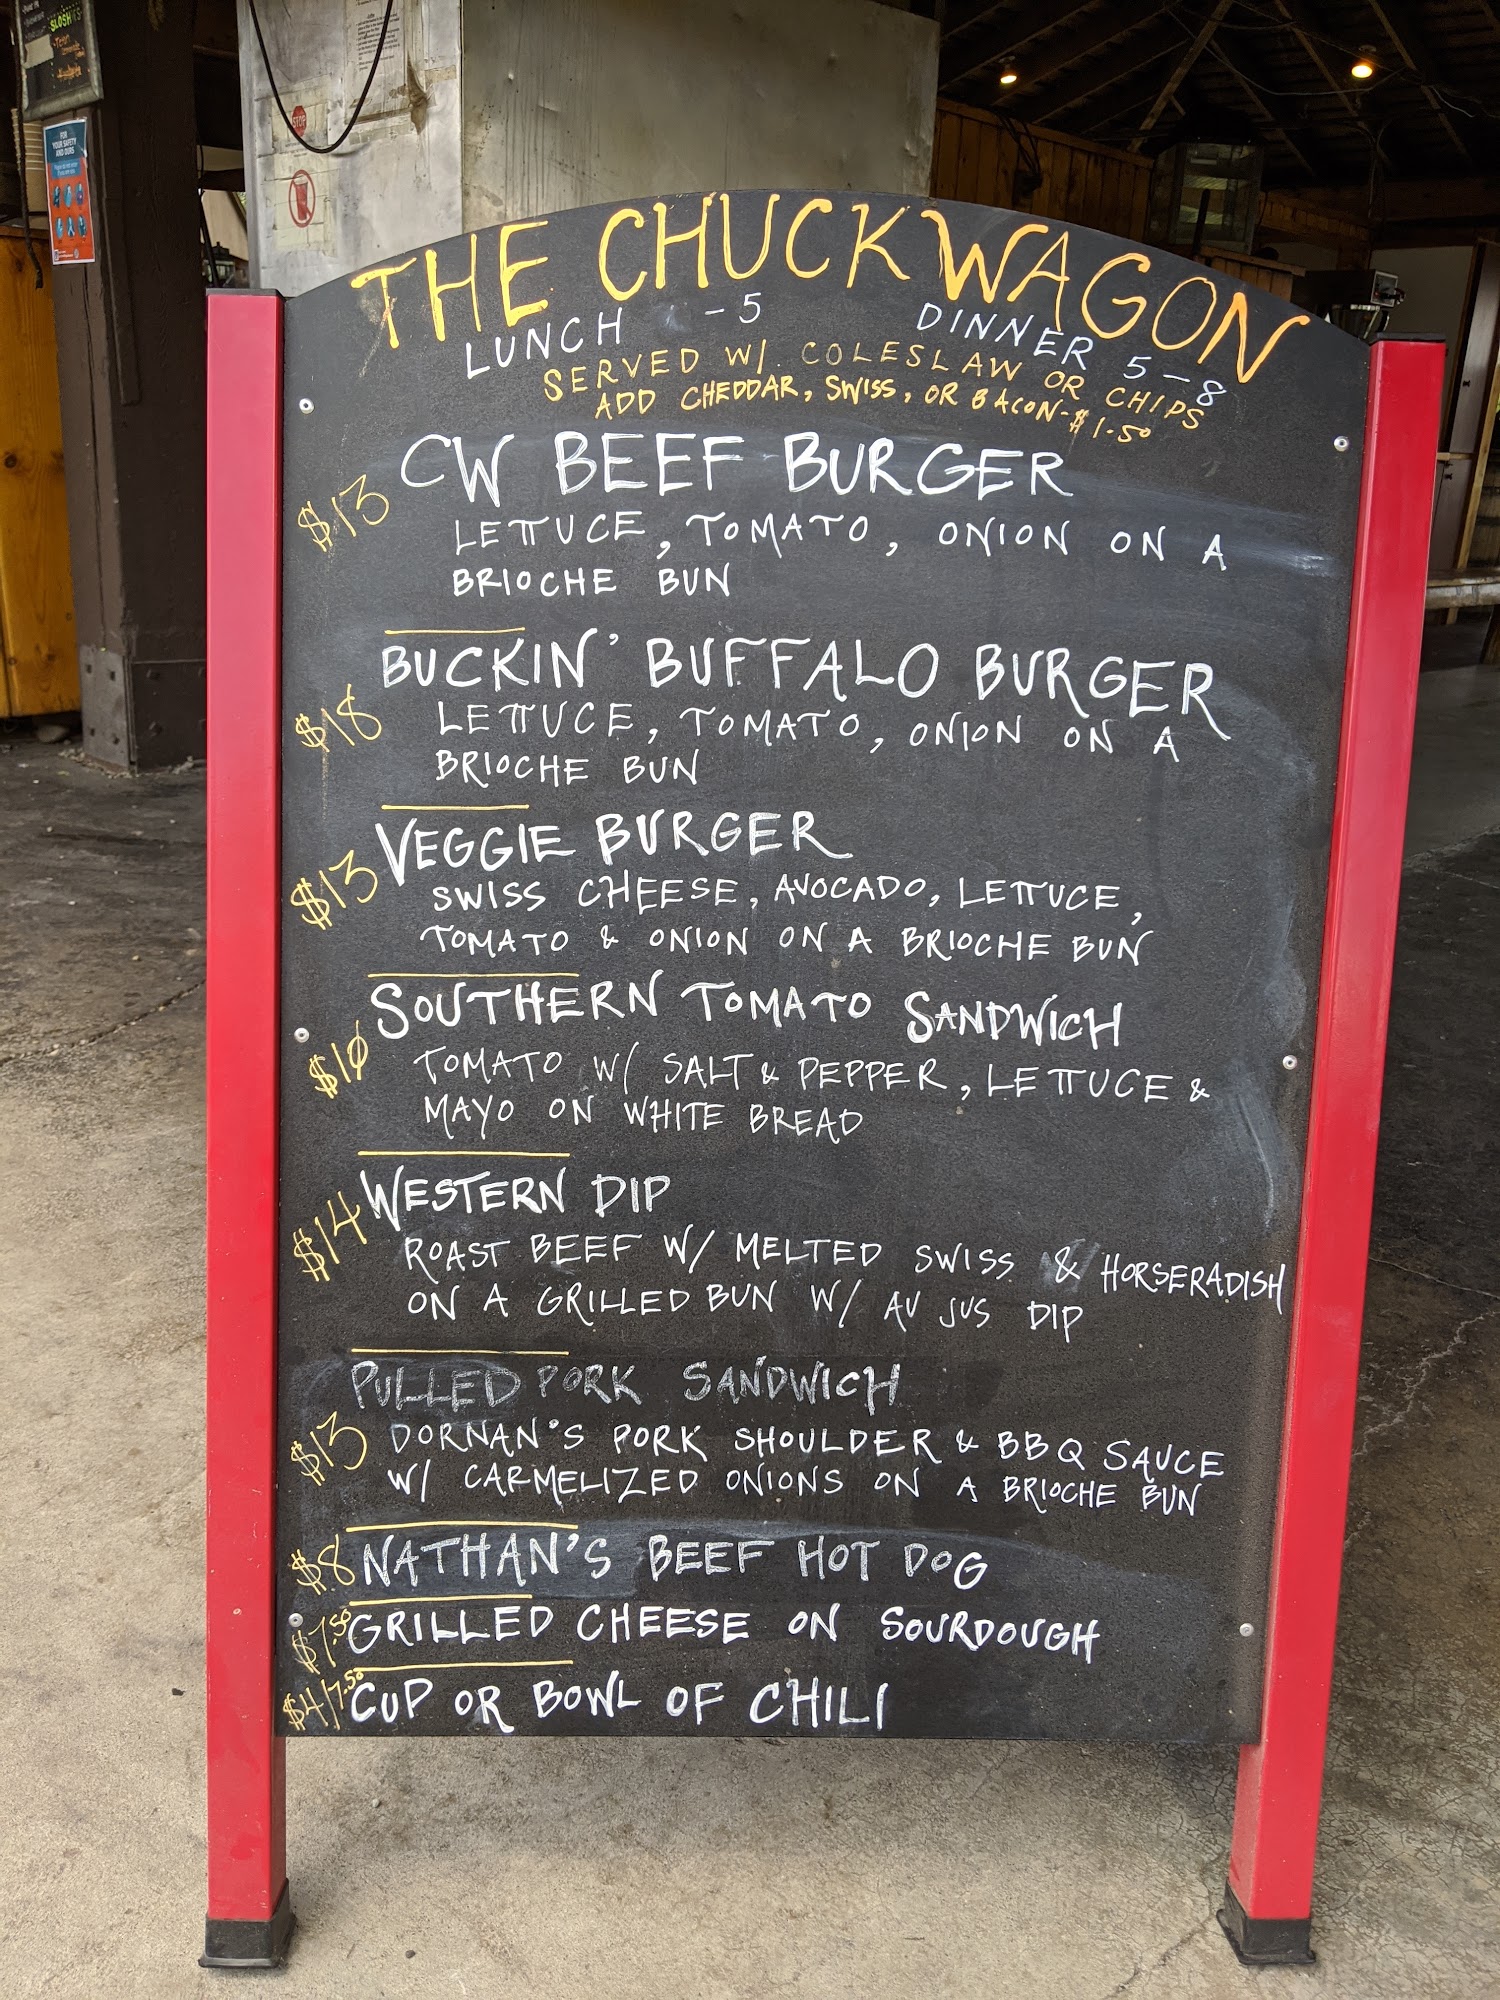 SLOSHIES
STOP
FOR
YOUR SAFETY
AND OURS
THE CHUCKWAGON
LUNCH -5 DINNER 5-8
SERVED W/ COLESLAW OR CHIPS
ADD CHEDDAR, SWISS, OR BACON-$1.50
$13 CW BEEF BURGER
LETTUCE, TOMATO, ONION ON A
BRIOCHE BUN
$18 BUCKIN' BUFFALO BURGER
LETTUCE, TOMATO, ONION ON A
BRIOCHE BUN
$13 VEGGIE BURGER
SWISS CHEESE, AVOCADO, LETTUCE,
TOMATO & ONION ON A BRIOCHE BUN
$10 SOUTHERN TOMATO SANDWICH
TOMATO W/ SALT & PEPPER, LETTUCE &
MAYO ON WHITE BREAD
$14 WESTERN DIP
ROAST BEEF W/ MELTED SWISS & HORSERADISH
ON A GRILLED BUN W/ AU JUS DIP
$13 PULLED PORK SANDWICH
DORNAN'S PORK SHOULDER & BBQ SAUCE
W/ CARMELIZED ONIONS ON A BRIOCHE BUN
$8 NATHAN'S BEEF HOT DOG
$7.50 GRILLED CHEESE ON SOURDOUGH
$4/7.50 CUP OR BOWL OF CHILI